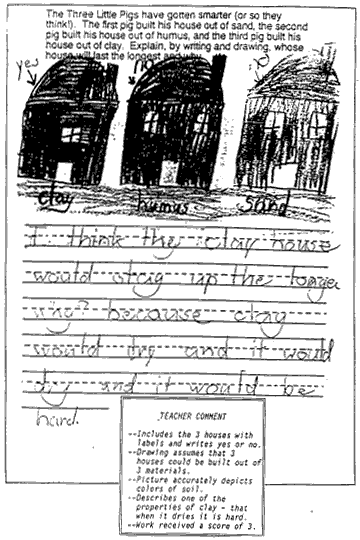 The Three Little Pigs have gotten smarter (or so they
think!). The first pig built his house out of sand, the second
pig built his house out of humus, and the third pig built his
house out of clay. Explain, by writing and drawing, whose
house will last the longest and why.
yes
no
no
clay humus sand
I think the clay house
would stay up the longer
why? because clay
would dry and it would
dry and it would be
hard.
TEACHER COMMENT
--Includes the 3 houses with
labels and writes yes or no.
--Drawing assumes that 3
houses could be built out of
3 materials.
--Picture accurately depicts
colors of soil.
--Describes one of the
properties of clay – that
when it dries it is hard.
--Work received a score of 3.